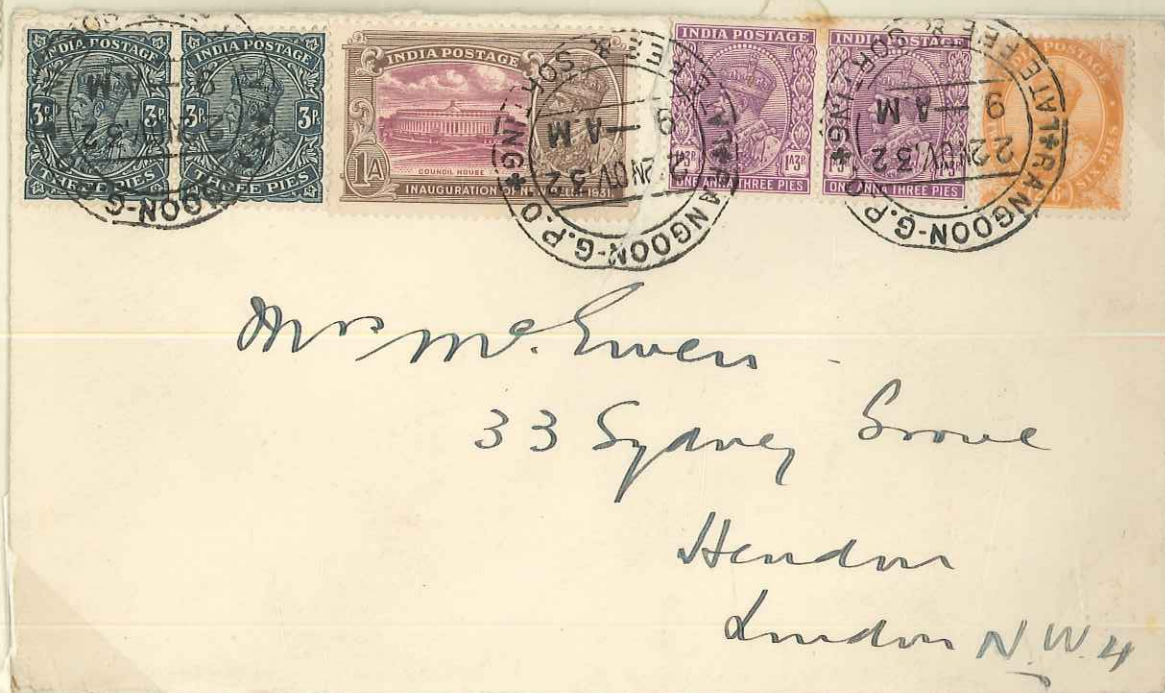 INDIA POSTAGE
3P. 3P.
THREE PIES
INDIA POSTAGE
3P. 3P.
THREE PIES
INDIA POSTAGE
COUNCIL HOUSE
1A
INAUGURATION OF NEW DELHI. 1931.
INDIA POSTAGE
1A3P 1A3P
ONE ANNA THREE PIES
INDIA POSTAGE
1A3P 1A3P
ONE ANNA THREE PIES
POSTAGE
SIX PIES
RANGOON-G.P.O
9 A.M
22 NOV. 32
RANGOON-G.P.O
LATE FEE & SORTING
9 A.M
22 NOV. 32
RANGOON-G.P.O
LATE FEE & SORTING
9 A.M
22 NOV. 32
Mrs McEwen
33 Sydney Grove
Hendon
London N.W.4